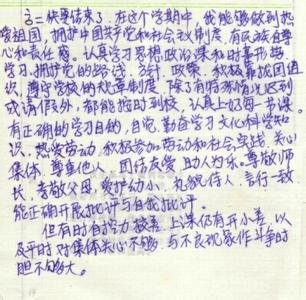 高二快要结束了，在这个学期中，我能够做到热
爱祖国，拥护中国共产党和社会主义制度，有民族自尊
心和责任感。认真学习思想政治课和时事形势
学习，拥护党的路线、方针、政策，积极靠拢团组
织，遵守学校的校章制度，除了有特殊情况迟到
或请假外，都能按时到校，认真上好每一节课，
有正确的学习目的，自觉、勤奋学习文化科学知
识，热爱劳动，积极参加劳动和社会实践，关心
集体，尊重他人，团结友爱，助人为乐。尊敬师
长，孝敬父母，爱护幼小，礼貌待人，言行一致
能正确开展批评与自我批评。
但有时自控力较差，上课仍有开小差，以
及平时对集体关心不够，与不良现象作斗争时
胆不够大。